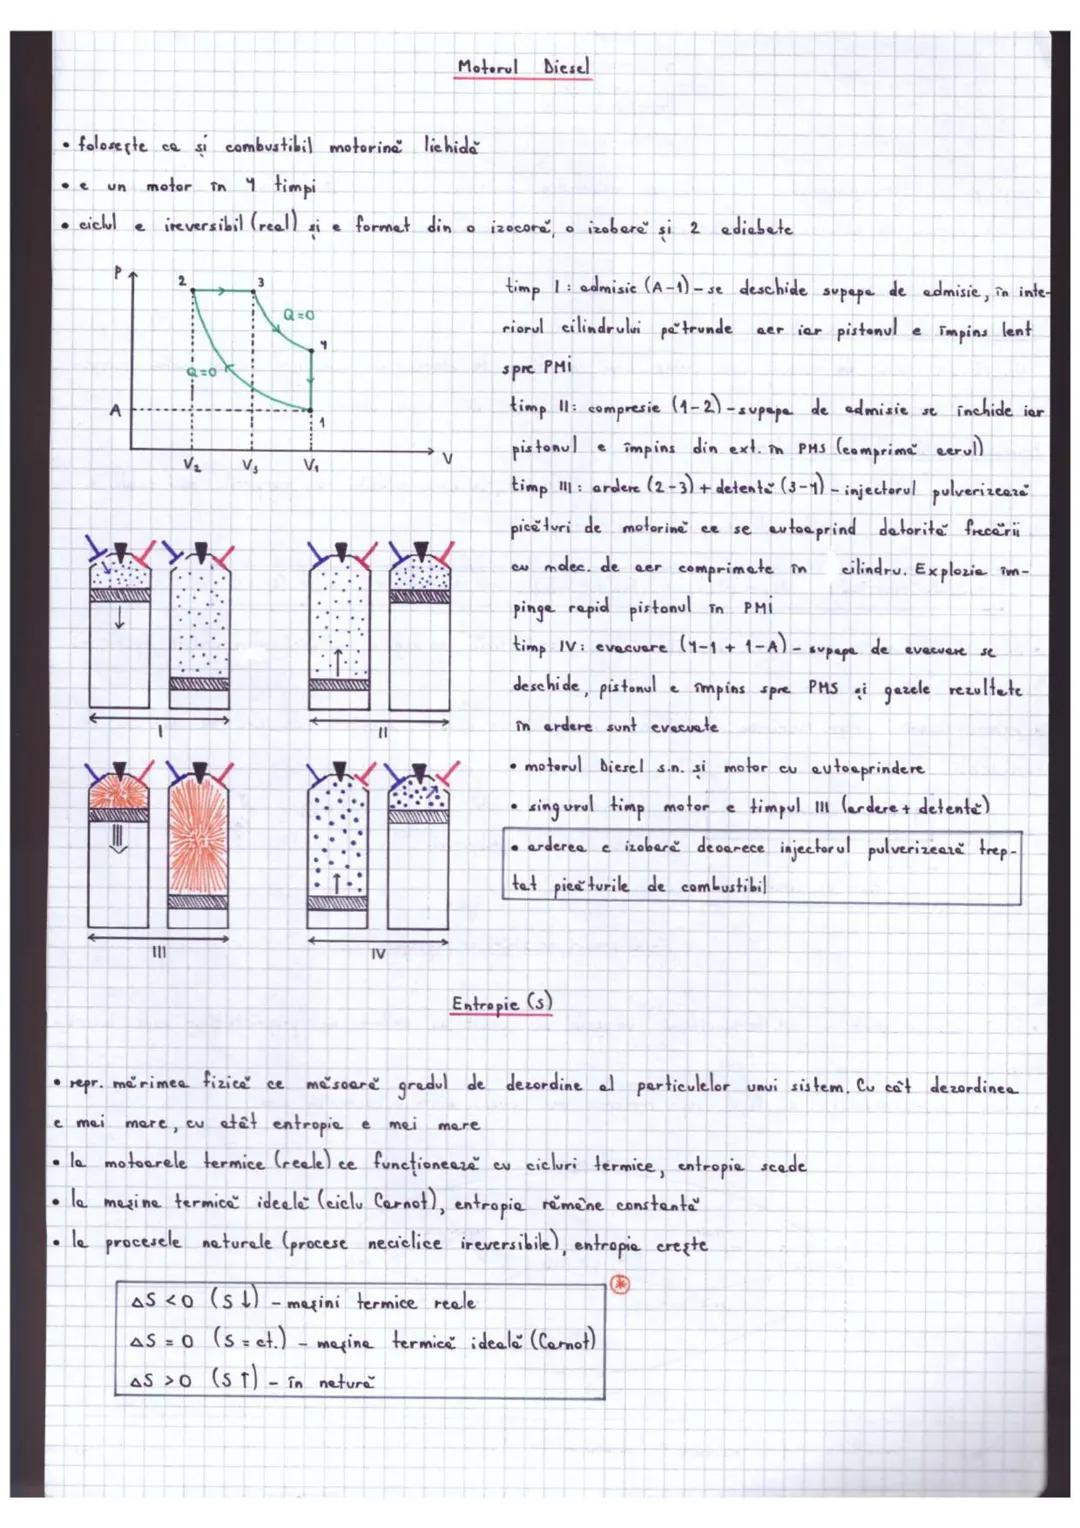 Motorul Diesel
• folosește ca și combustibil motorină lichidă
• e un motor în 4 timpi
• ciclul e ireversibil (real) și e format din o izocoră, o izobară și 2 adiabate
P
2
3
Q=0
4
Q=0
A
1
V₂
V₃
V₁
V
timp I: admisie (A-1) - se deschide supapa de admisie, în inte-
riorul cilindrului pătrunde aer iar pistonul e împins lent
spre PMI
timp II: compresie (1-2) - supapa de admisie se închide iar
pistonul e împins din ext. în PMS (comprimă aerul)
timp III: ardere (2-3) + detentă (3-4) - injectorul pulverizează
picături de motorină ce se autoaprind datorită frecării
cu molec. de aer comprimate în cilindru. Explozia îm-
pinge rapid pistonul în PMI
timp IV: evacuare (4-1 + 1-A) - supapa de evacuare se
deschide, pistonul e împins spre PMS și gazele rezultate
în ardere sunt evacuate
• motorul Diesel s.n. și motor cu autoaprindere
• singurul timp motor e timpul III (ardere + detentă)
• arderea e izobară deoarece injectorul pulverizează trep-
tat picăturile de combustibil
I
II
III
IV
Entropie (S)
• repr. mărimea fizică ce măsoară gradul de dezordine al particulelor unui sistem. Cu cât dezordinea
e mai mare, cu atât entropia e mai mare
• la motoarele termice (reale) ce funcționează cu cicluri termice, entropia scade
• la mașina termică ideală (ciclu Carnot), entropia rămâne constantă
• la procesele naturale (procese neciclice ireversibile), entropia crește
ΔS < 0 (S ↓) - mașini termice reale
ΔS = 0 (S = ct.) - mașina termică ideală (Carnot)
ΔS > 0 (S ↑) - în natură